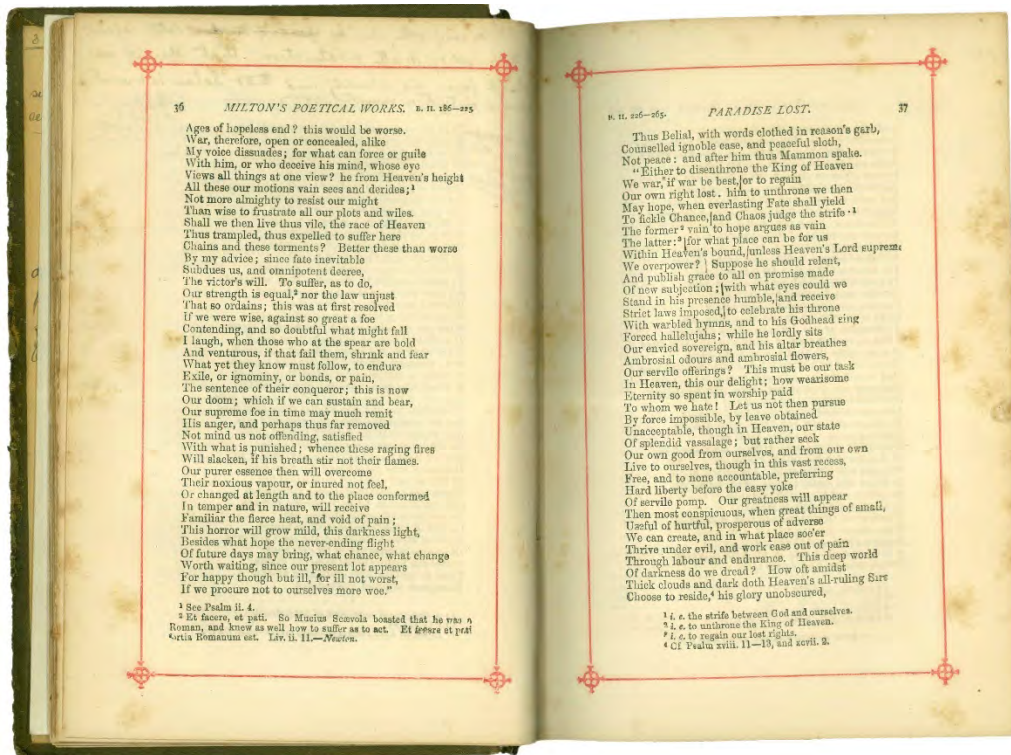 36 MILTON'S POETICAL WORKS. B. II. 186—225
Ages of hopeless end? this would be worse.
War, therefore, open or concealed, alike
My voice dissuades; for what can force or guile
With him, or who deceive his mind, whose eye
Views all things at one view? he from Heaven's height
All these our motions vain sees and derides;¹
Not more almighty to resist our might
Than wise to frustrate all our plots and wiles.
Shall we then live thus vile, the race of Heaven
Thus trampled, thus expelled to suffer here
Chains and these torments? Better these than worse
By my advice; since fate inevitable
Subdues us, and omnipotent decree,
The victor's will. To suffer, as to do,
Our strength is equal,² nor the law unjust
That so ordains; this was at first resolved
If we were wise, against so great a foe
Contending, and so doubtful what might fall
I laugh, when those who at the spear are bold
And venturous, if that fail them, shrink and fear
What yet they know must follow, to endure
Exile, or ignominy, or bonds, or pain,
The sentence of their conqueror; this is now
Our doom; which if we can sustain and bear,
Our supreme foe in time may much remit
His anger, and perhaps thus far removed
Not mind us not offending, satisfied
With what is punished; whence these raging fires
Will slacken, if his breath stir not their flames.
Our purer essence then will overcome
Their noxious vapour, or inured not feel,
Or changed at length and to the place conformed
In temper and in nature, will receive
Familiar the fierce heat, and void of pain;
This horror will grow mild, this darkness light,
Besides what hope the never-ending flight
Of future days may bring, what chance, what change
Worth waiting, since our present lot appears
For happy though but ill, for ill not worst,
If we procure not to ourselves more woe."
¹ See Psalm ii. 4.
² Et facere, et pati. So Mucius Scævola boasted that he was a
Roman, and knew as well how to suffer as to act. Et facere et pati
fortia Romanum est. Liv. ii. 11.—Newton.
B. II. 226—265. PARADISE LOST. 37
Thus Belial, with words clothed in reason's garb,
Counselled ignoble ease, and peaceful sloth,
Not peace: and after him thus Mammon spake.
"Either to disenthrone the King of Heaven
We war, if war be best, or to regain
Our own right lost. him to unthrone we then
May hope, when everlasting Fate shall yield
To fickle Chance, and Chaos judge the strife·¹
The former² vain to hope argues as vain
The latter:³ for what place can be for us
Within Heaven's bound, unless Heaven's Lord supreme
We overpower? Suppose he should relent,
And publish grace to all on promise made
Of new subjection; with what eyes could we
Stand in his presence humble, and receive
Strict laws imposed, to celebrate his throne
With warbled hymns, and to his Godhead sing
Forced hallelujahs; while he lordly sits
Our envied sovereign, and his altar breathes
Ambrosial odours and ambrosial flowers,
Our servile offerings? This must be our task
In Heaven, this our delight; how wearisome
Eternity so spent in worship paid
To whom we hate! Let us not then pursue
By force impossible, by leave obtained
Unacceptable, though in Heaven, our state
Of splendid vassalage; but rather seek
Our own good from ourselves, and from our own
Live to ourselves, though in this vast recess,
Free, and to none accountable, preferring
Hard liberty before the easy yoke
Of servile pomp. Our greatness will appear
Then most conspicuous, when great things of small,
Useful of hurtful, prosperous of adverse
We can create, and in what place soe'er
Thrive under evil, and work ease out of pain
Through labour and endurance. This deep world
Of darkness do we dread? How oft amidst
Thick clouds and dark doth Heaven's all-ruling Sire
Choose to reside,⁴ his glory unobscured,
¹ i. e. the strife between God and ourselves.
² i. e. to unthrone the King of Heaven.
³ i. e. to regain our lost rights.
⁴ Cf Psalm xviii. 11—13, and xcvii. 2.